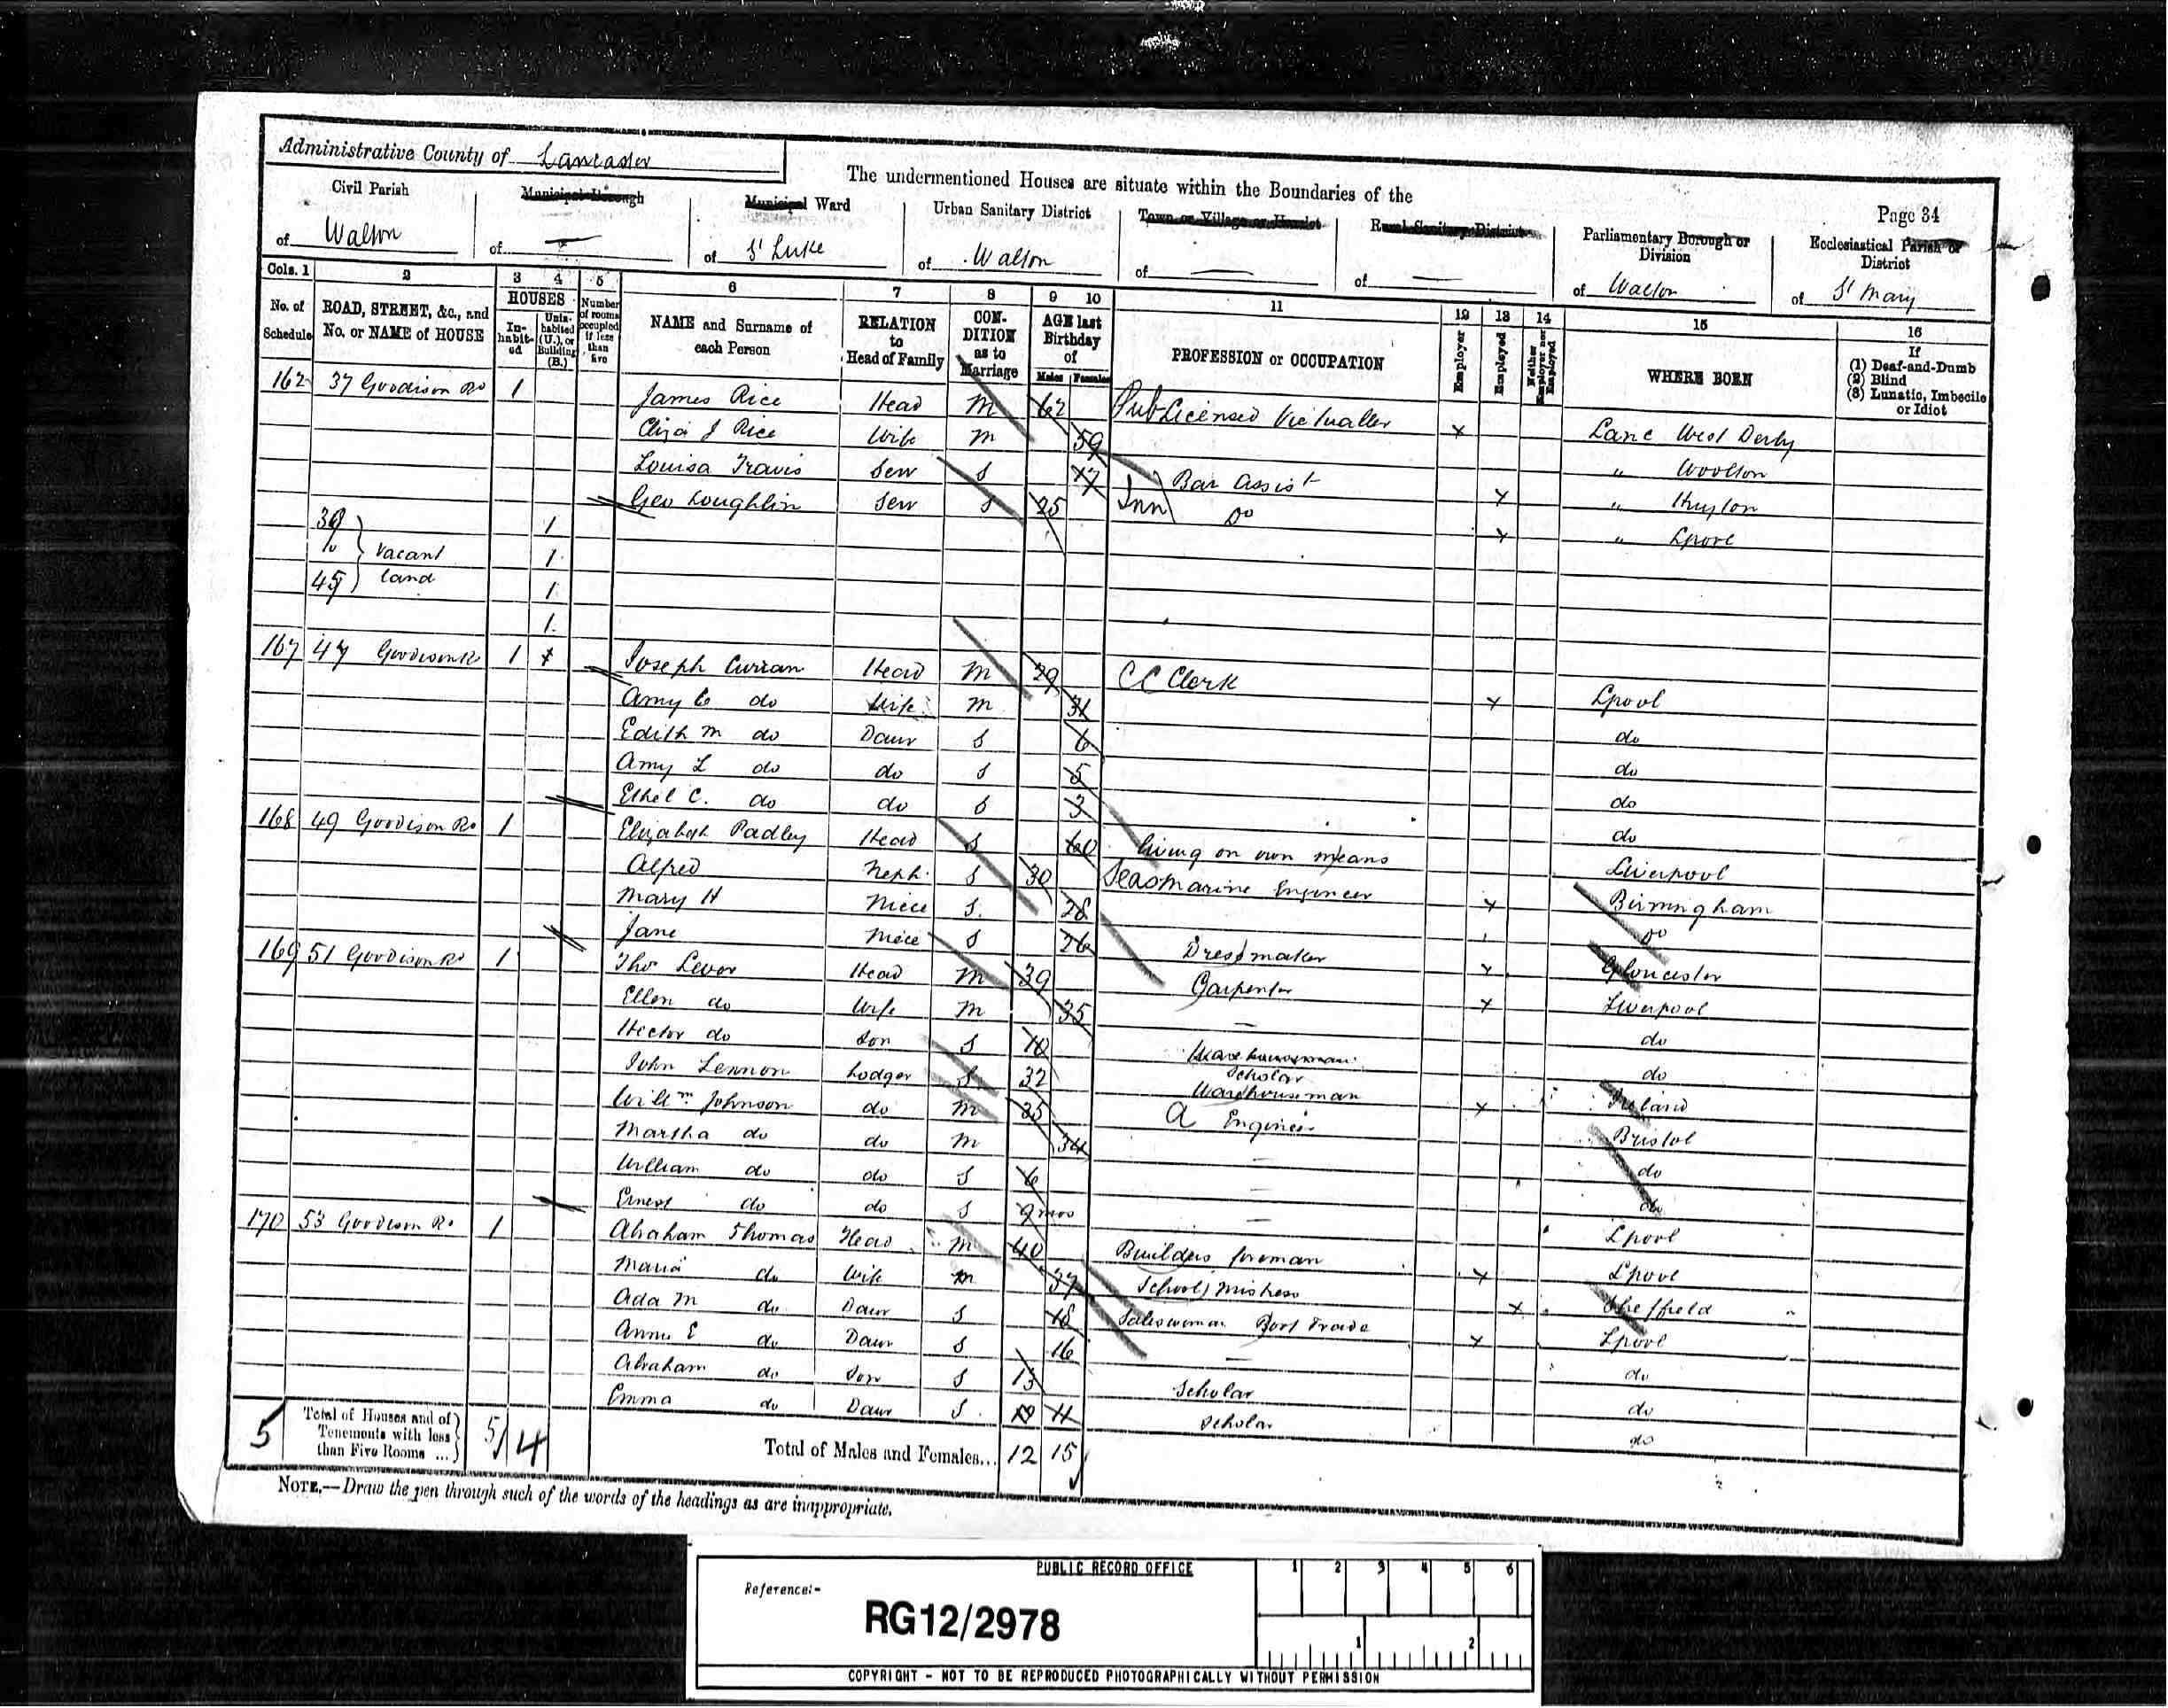 Administrative County of Lancaster
The undermentioned Houses are situate within the Boundaries of the
Page 34
Civil Parish of Walton
Municipal Borough of —
Municipal Ward of St Luke
Urban Sanitary District of Walton
Town or Village or Hamlet of —
Rural Sanitary District of —
Parliamentary Borough or Division of Walton
Ecclesiastical Parish or District of St Mary
Cols. 1 2 3 4 5 6 7 8 9 10 11 12 13 14 15 16
No. of Schedule
ROAD, STREET, &c., and No. or NAME of HOUSE
HOUSES
In-habit-ed
Unin-habited (U.), or Building (B.)
Number of rooms occupied if less than five
NAME and Surname of each Person
RELATION to Head of Family
CON-DITION as to Marriage
AGE last Birthday of
Males Females
PROFESSION or OCCUPATION
Employer
Employed
Neither Employer nor Employed
WHERE BORN
If (1) Deaf-and-Dumb (2) Blind (3) Lunatic, Imbecile or Idiot
162 37 Goodison Rd 1 James Rice Head M 62 Pub Licensed Victualler x Lanc West Derby
Eliza J Rice Wife M 59 " Woolton
Louisa Travis Serv S 17 Bar Assist x " Huyton
Geo Loughlin Serv S 25 Inn Do x " Lpool
39 1
to } Vacant 1
45 } land 1
1
167 47 Goodison R 1 Joseph Curran Head M 29 C C Clerk x Lpool
Amy C do Wife M 31 do
Edith M do Daur S 6 do
Amy L do do S 5 do
Ethel C. do do S 3 do
168 49 Goodison Rd 1 Elizabeth Padley Head S 60 living on own means Liverpool
Alfred Neph S 30 Seas Marine Engineer x Birmingham
Mary H Niece S. 28 Do
Jane Niece S 26 Dressmaker x Gloucester
169 51 Goodison Rd 1 Thos Lever Head M 39 Carpenter x Liverpool
Ellen do Wife M 35 — do
Hector do Son S 10 Warehouseman Scholar do
John Lennon Lodger S 32 Warehouseman x Ireland
Willm Johnson do M 35 a Engineer Bristol
Martha do do M 34 — do
William do do S 6 — do
Ernest do do S 9 mos — Lpool
170 53 Goodison Rd 1 Abraham Thomas Head M 40 Builders foreman x Lpool
Maria do Wife M 37 School Mistress x Sheffield
Ada M do Daur S 18 Saleswoman Boot Trade x Lpool
Annie E do Daur S 16 — do
Abraham do Son S 13 Scholar do
Emma do Daur S 11 Scholar do
5 Total of Houses and of Tenements with less than Five Rooms ... 5/4
Total of Males and Females... 12 15
NOTE.—Draw the pen through such of the words of the headings as are inappropriate.
PUBLIC RECORD OFFICE
1 2 3 4 5 6
Reference:-
RG12/2978
1 2
COPYRIGHT - NOT TO BE REPRODUCED PHOTOGRAPHICALLY WITHOUT PERMISSION